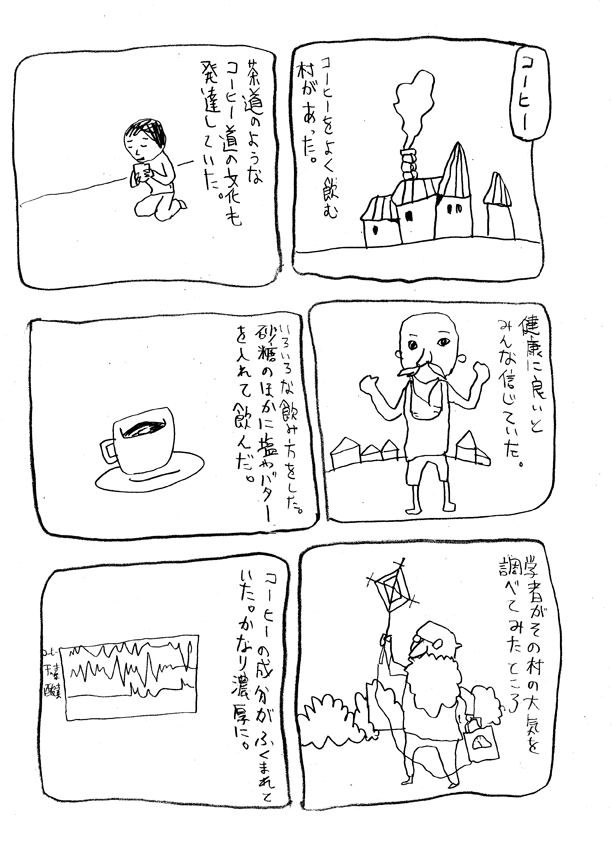 コーヒー
コーヒーをよく飲む
村があった。
茶道のような
コーヒー道の文化も
発達していた。
健康に良いと
みんな信じていた。
いろいろな飲み方をした。
砂糖のほかに塩やバター
を入れて飲んだ。
学者がその村の大気を
調べてみたところ
コーヒーの成分がふくまれて
いた。かなり濃厚に。
コーヒー
酸素